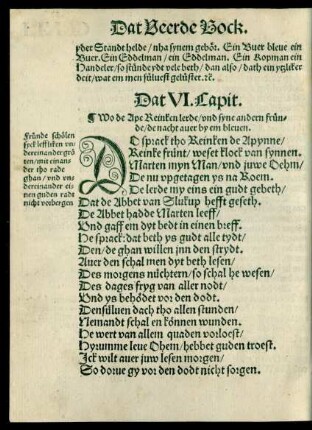 Dat Veerde Bock.
yder Standt helde / na synem gebör. Ein Buer bleue ein
Buer. Ein Eddelman / ein Eddelman. Ein Kopman ein
Handeler / so stünde ydt vele beth / dan also / dath ein ytzlicker
deit / wat em men sülvest gelüstet. ꝛc.
Dat VI. Capit.
¶ Wo de Ape Reinken lerde / vnd syne andern frün-
de / de nacht auer by em bleuen.
Fründe schölen
sick leeffliken vn-
dereinander grö-
ten / mit einan-
der tho rade
ghan / vnd vn-
dereinander ei-
nen guden radt
nicht vorbergen
DO sprack tho Reinken de Apynne /
Reinke fründ / weset klock van synnen.
Marten myn Man / vnd juwe Oehm /
De nu vpgetagen ys na Roem.
De lerde my eins ein gudt gebeth /
Dat de Abbet van Slukup hefft geseth.
De Abbet hadde Marten leeff /
Vnd gaff em dyt bedt in einen breff.
He sprack: dat beth ys gudt alle tydt /
Den / de ghan willen jnn den strydt.
Auer den schal men dyt beth lesen /
Des morgens nüchtern / so schal he wesen /
Des dages fryg van aller nodt /
Vnd ys behödet vor den dodt.
Densüluen dach tho allen stunden /
Nemandt schal en können wunden.
He wert van allem quaden vorloest /
Hyrumme leue Ohem / hebbet guden troest.
Ick wilt auer juw lesen morgen /
So dorue gy vor den dodt nicht sorgen.